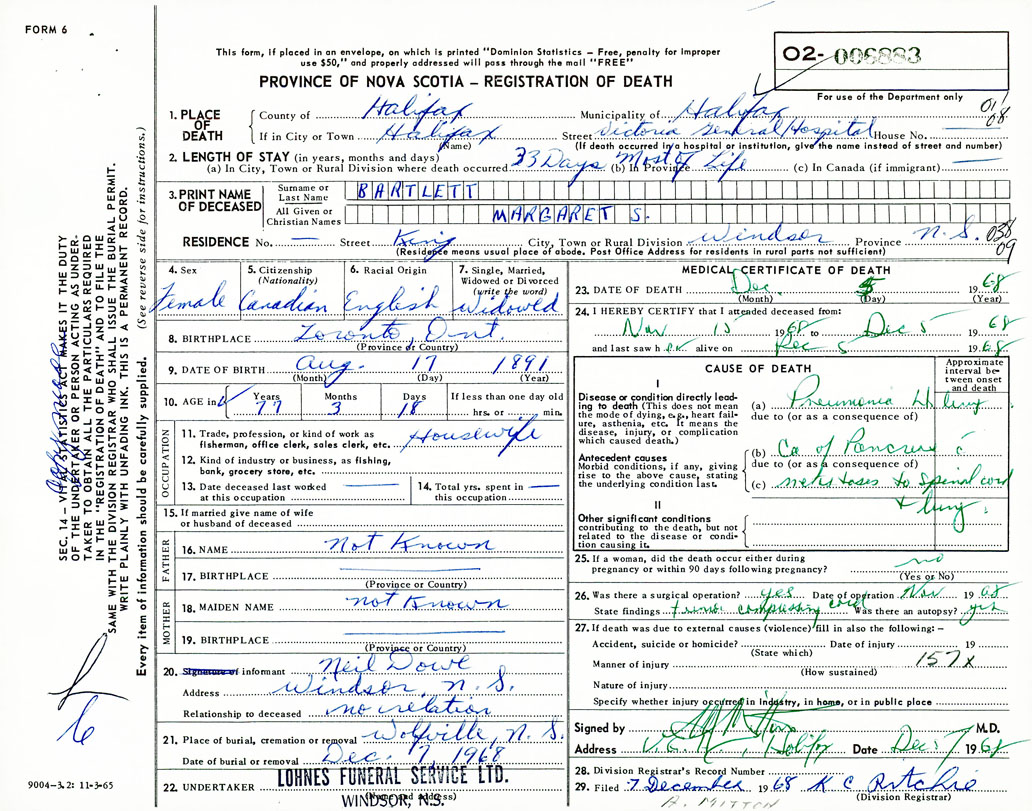 FORM 6
This form, if placed in an envelope, on which is printed "Dominion Statistics – Free, penalty for improper
use $50," and properly addressed will pass through the mail "FREE"
O2- 006883
PROVINCE OF NOVA SCOTIA – REGISTRATION OF DEATH
For use of the Department only
1. PLACE OF DEATH
County of Halifax Municipality of Halifax 01/08
If in City or Town Halifax Street Victoria General Hospital House No. —
(Name) (If death occurred in a hospital or institution, give the name instead of street and number)
2. LENGTH OF STAY (in years, months and days)
(a) In City, Town or Rural Division where death occurred 33 Days (b) In Province Most of Life (c) In Canada (if immigrant) —
3. PRINT NAME OF DECEASED
Surname or Last Name BARTLETT
All Given or Christian Names MARGARET S.
RESIDENCE No. — Street King City, Town or Rural Division Windsor Province N.S. 038/09
(Residence means usual place of abode. Post Office Address for residents in rural parts not sufficient)
4. Sex Female
5. Citizenship (Nationality) Canadian
6. Racial Origin English
7. Single, Married, Widowed or Divorced (write the word) Widowed
8. BIRTHPLACE Toronto, Ont.
(Province or Country)
9. DATE OF BIRTH Aug. 17 1891
(Month) (Day) (Year)
10. AGE in Years 77 Months 3 Days 18 If less than one day old
hrs. or min.
OCCUPATION
11. Trade, profession, or kind of work as fisherman, office clerk, sales clerk, etc. Housewife
12. Kind of industry or business, as fishing, bank, grocery store, etc.
13. Date deceased last worked at this occupation —
14. Total yrs. spent in this occupation —
15. If married give name of wife or husband of deceased
FATHER
16. NAME Not Known
17. BIRTHPLACE —
(Province or Country)
MOTHER
18. MAIDEN NAME not Known
19. BIRTHPLACE —
(Province or Country)
20. Signature of informant Neil Dowe
Address Windsor, N.S.
Relationship to deceased no relation
21. Place of burial, cremation or removal Wolfville, N.S.
Date of burial or removal Dec. 7, 1968
22. UNDERTAKER LOHNES FUNERAL SERVICE LTD.
(Name and address)
WINDSOR, N.S.
MEDICAL CERTIFICATE OF DEATH
23. DATE OF DEATH Dec. 5 1968
(Month) (Day) (Year)
24. I HEREBY CERTIFY that I attended deceased from:
Nov 15 1968 to Dec 5 1968
and last saw her alive on Dec 5 1968
CAUSE OF DEATH
Approximate interval between onset and death
I
Disease or condition directly leading to death (This does not mean the mode of dying, e.g., heart failure, asthenia, etc. It means the disease, injury, or complication which caused death.)
(a) Pneumonia Lt lung
due to (or as a consequence of)
Antecedent causes
Morbid conditions, if any, giving rise to the above cause, stating the underlying condition last.
(b) Ca of Pancreas c̄
due to (or as a consequence of)
(c) metastases to Spinal cord
+ lung.
II
Other significant conditions contributing to the death, but not related to the disease or condition causing it.
25. If a woman, did the death occur either during pregnancy or within 90 days following pregnancy? no
(Yes or No)
26. Was there a surgical operation? yes Date of operation Nov 1968
State findings Tumor compressing cord Was there an autopsy? yes
27. If death was due to external causes (violence) fill in also the following: –
Accident, suicide or homicide? Date of injury 19
(State which)
Manner of injury 157x
(How sustained)
Nature of injury
Specify whether injury occurred in industry, in home, or in public place
Signed by M.D.
Address V.G. Halifax Date Dec 7 1968
28. Division Registrar's Record Number
29. Filed 7 December 1968 K C Ritchie
(Division Registrar)
A. MITTON
SEC. 14 – VITAL STATISTICS ACT MAKES IT THE DUTY
OF THE UNDERTAKER OR PERSON ACTING AS UNDER-
TAKER TO OBTAIN ALL THE PARTICULARS REQUIRED
IN THE "REGISTRATION OF DEATH" AND TO FILE THE
SAME WITH THE DIVISION REGISTRAR WHO SHALL ISSUE THE BURIAL PERMIT.
WRITE PLAINLY WITH UNFADING INK. THIS IS A PERMANENT RECORD.
Every item of information should be carefully supplied. (See reverse side for instructions.)
6
9004-3.2: 11-3-65